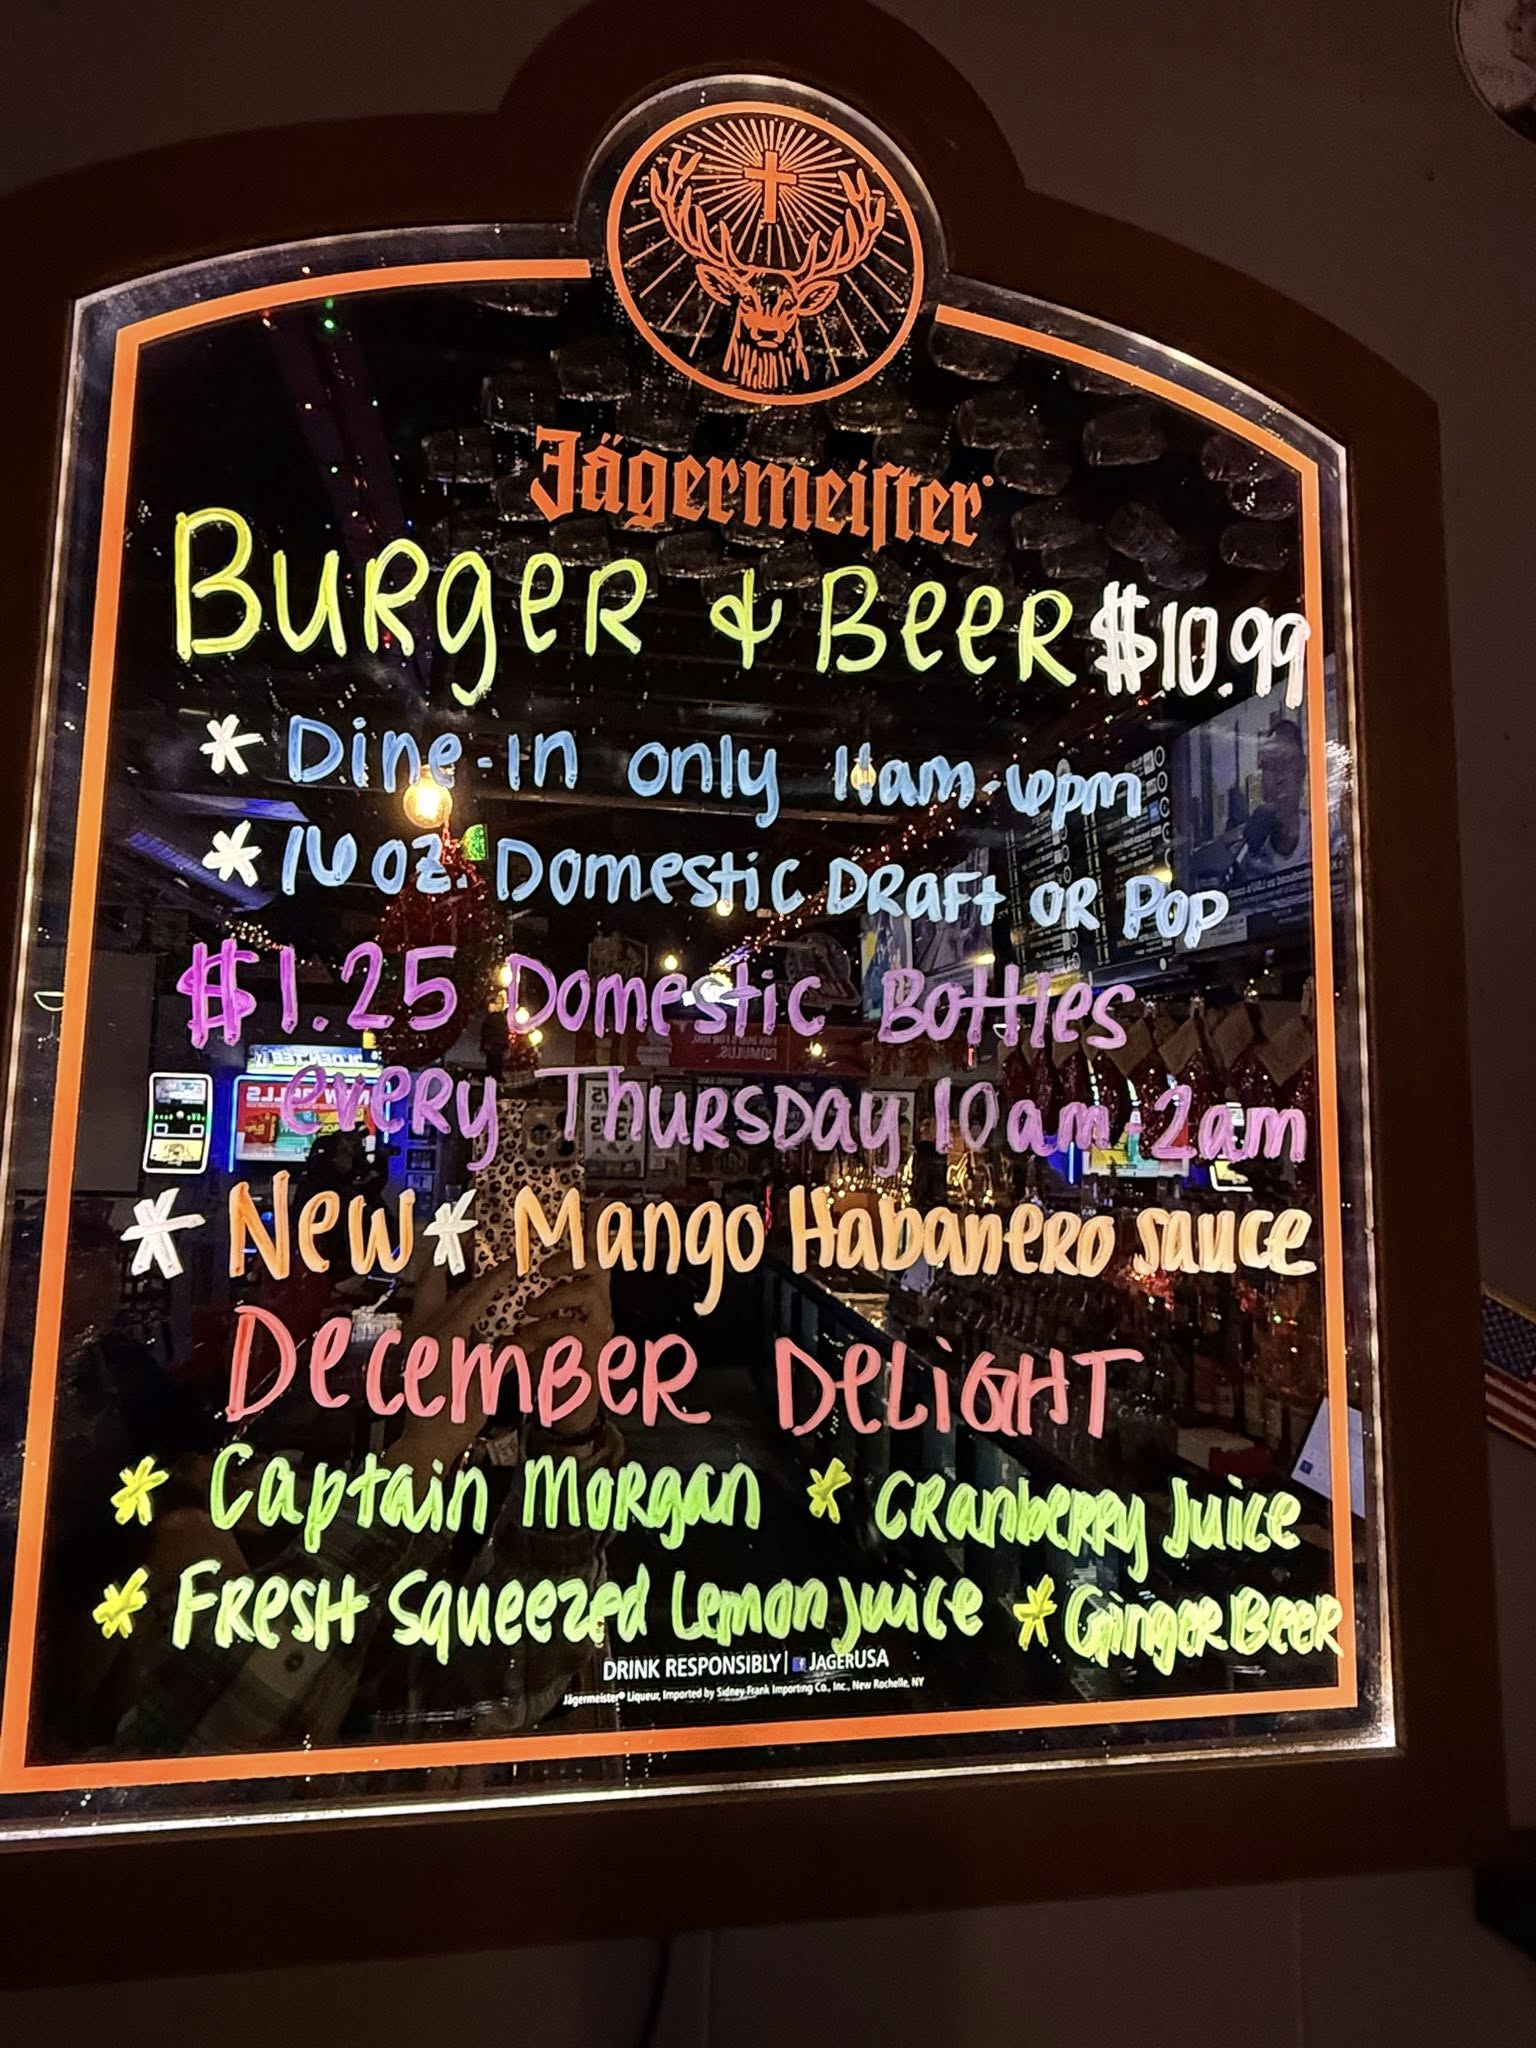 Jägermeister
Burger & Beer $10.99
* Dine-in only 11am-6pm
* 16 oz. Domestic Draft or Pop
$1.25 Domestic Bottles
every Thursday 10am-2am
* New * Mango Habanero sauce
December Delight
* Captain Morgan * Cranberry Juice
* Fresh Squeezed Lemon Juice * Ginger Beer
DRINK RESPONSIBLY | JAGERUSA
Jägermeister® Liqueur, Imported by Sidney Frank Importing Co., Inc., New Rochelle, NY